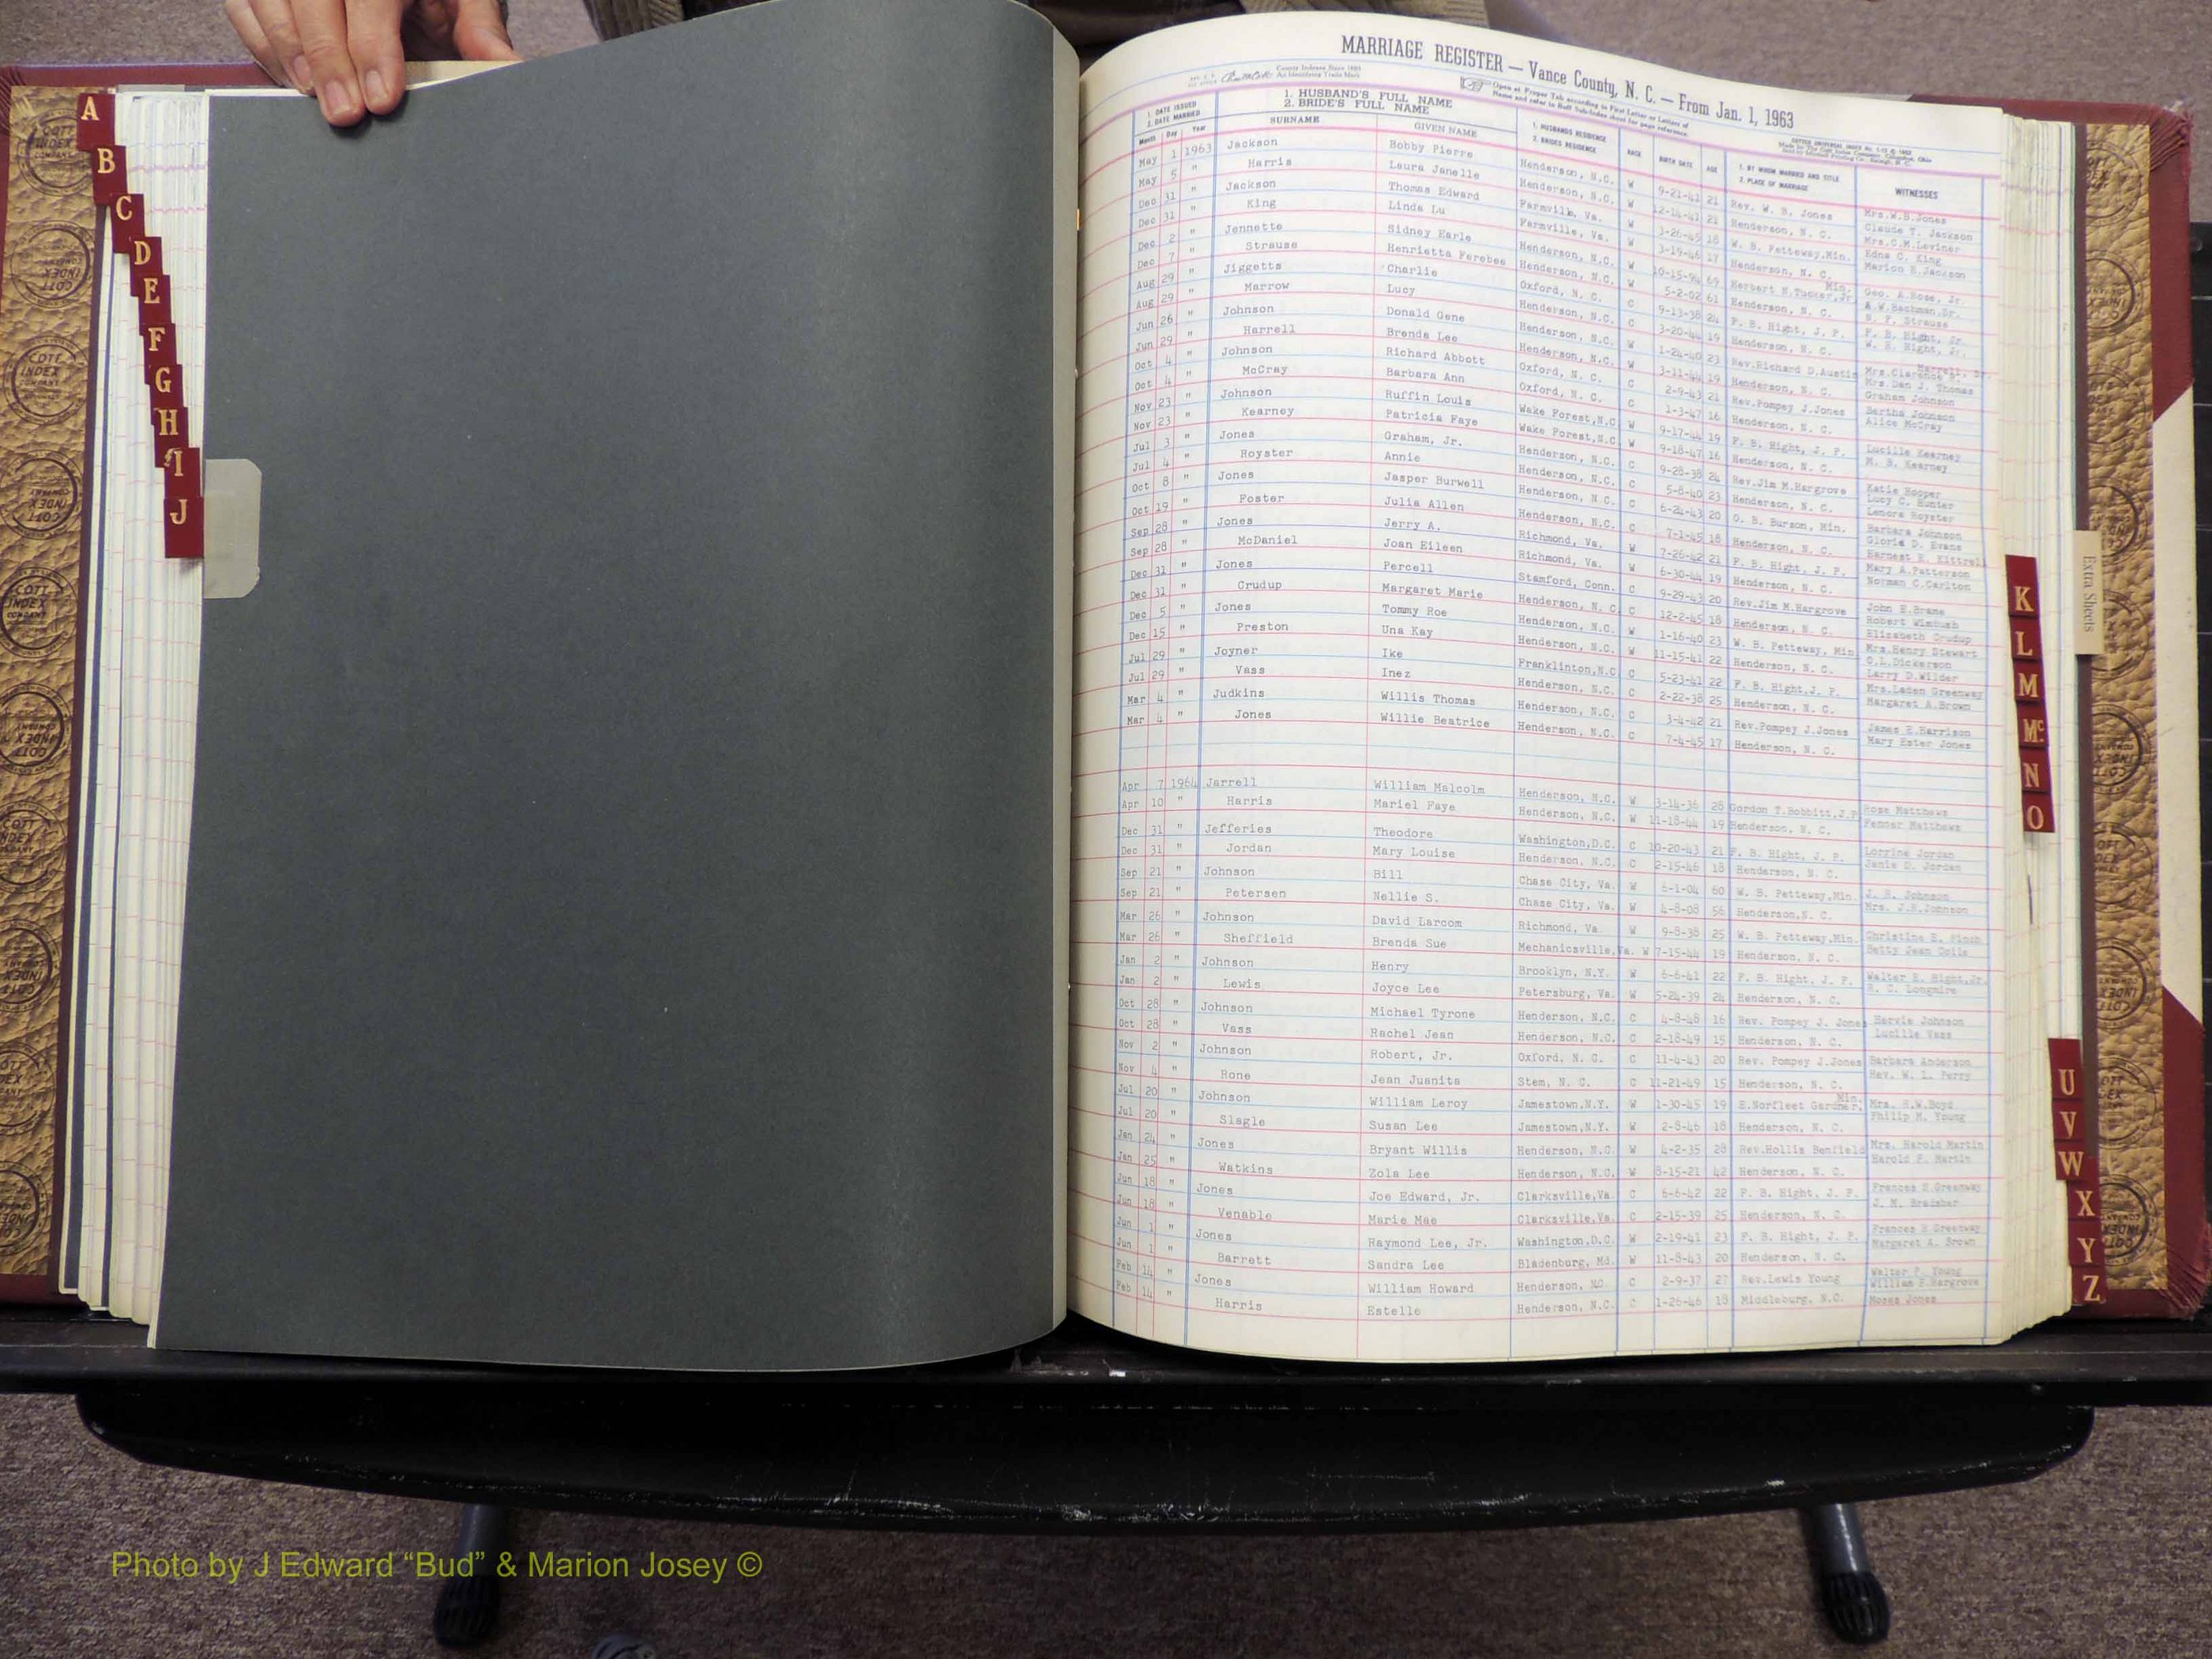 MARRIAGE REGISTER — Vance County, N. C. — From Jan. 1, 1963
County Indexes Since 1888
An Identifying Trade Mark
Open at Proper Tab according to First Letter or Letters of
Name and refer to Buff Sub-Index sheet for page reference.
1. DATE ISSUED 2. DATE MARRIED
1. HUSBAND'S FULL NAME
2. BRIDE'S FULL NAME
1. HUSBANDS RESIDENCE 2. BRIDES RESIDENCE
1. BY WHOM MARRIED AND TITLE 2. PLACE OF MARRIAGE
Month Day Year SURNAME GIVEN NAME RACE BIRTH DATE AGE WITNESSES
May 1 1963 Jackson Bobby Pierre Henderson, N.C. W 9-21-41 21 Rev. W. B. Jones Mrs.W.B.Jones
May 5 " Harris Laura Janelle Henderson, N.C. W 12-14-41 21 Henderson, N. C. Claude T. Jackson
Dec 31 " Jackson Thomas Edward Farmville, Va. W 3-26-45 18 W. B. Petteway,Min. Mrs.C.M.Leviner Edna C. King
Dec 31 " King Linda Lu Farmville, Va. W 3-19-46 17 Henderson, N. C. Marion E.Jackson
Dec 2 " Jennette Sidney Earle Henderson, N.C. W 10-15-94 69 Herbert N.Tucker,Jr. Min. Geo. A.Rose, Jr.
Dec 7 " Strause Henrietta Ferebee Henderson, N.C. W 5-2-02 61 Henderson, N. C. A.W.Bachman,Sr. S. P. Strause
Aug 29 " Jiggetts Charlie Oxford, N. C. C 9-13-38 24 F. B. Hight, J. P. F. B. Hight, Jr.
Aug 29 " Marrow Lucy Henderson, N.C. C 3-20-44 19 Henderson, N. C. W. E. Hight, Jr.
Jun 26 " Johnson Donald Gene Henderson, N.C. W 1-24-40 23 Rev.Richard D.Austin Mrs.Clarence Harrell, Sr
Jun 29 " Harrell Brenda Lee Henderson, N.C. W 3-11-44 19 Henderson, N. C. Mrs.Dan J. Thomas
Oct 4 " Johnson Richard Abbott Oxford, N. C. C 2-9-43 21 Rev.Pompey J.Jones Graham Johnson Bertha Johnson
Oct 4 " McCray Barbara Ann Oxford, N. C. C 1-3-47 16 Henderson, N. C. Alice McCray
Nov 23 " Johnson Ruffin Louis Wake Forest,N.C W 9-17-44 19 F. B. Hight, J. P. Lucille Kearney
Nov 23 " Kearney Patricia Faye Wake Forest,N.C W 9-18-47 16 Henderson, N. C. M. B. Kearney
Jul 3 " Jones Graham, Jr. Henderson, N.C. C 9-28-38 24 Rev.Jim M.Hargrove Katie Hooper Lucy C. Hunter
Jul 4 " Royster Annie Henderson, N.C. C 5-8-40 23 Henderson, N. C. Lenora Royster
Oct 8 " Jones Jasper Burwell Henderson, N.C. C 6-24-43 20 O. B. Burson, Min. Barbara Johnson Gloria D. Evans
Oct 19 " Foster Julia Allen Henderson, N.C. C 7-1-45 18 Henderson, N. C. Earnest E. Kittrell
Sep 28 " Jones Jerry A. Richmond, Va. W 7-26-42 21 F. B. Hight, J. P. Mary A.Patterson
Sep 28 " McDaniel Joan Eileen Richmond, Va. W 6-30-44 19 Henderson, N. C. Norman C.Carlton
Dec 31 " Jones Percell Stamford, Conn. C 9-29-43 20 Rev.Jim M.Hargrove John E.Brame Robert Wimbush
Dec 31 " Crudup Margaret Marie Henderson, N. C. C 12-2-45 18 Henderson, N. C. Elizabeth Crudup
Dec 5 " Jones Tommy Roe Henderson, N.C. W 1-16-40 23 W. B. Petteway, Min Mrs.Henry Stewart O.L.Dickerson
Dec 15 " Preston Una Kay Henderson, N.C. W 11-15-41 22 Henderson, N. C. Larry D.Wilder
Jul 29 " Joyner Ike Franklinton,N.C C 5-23-41 22 F. B. Hight,J. P. Mrs.Laden Greenway
Jul 29 " Vass Inez Henderson, N.C. C 2-22-38 25 Henderson, N. C. Margaret A.Brown
Mar 4 " Judkins Willis Thomas Henderson, N.C. C 3-4-42 21 Rev.Pompey J.Jones James E.Harrison
Mar 4 " Jones Willie Beatrice Henderson, N.C. C 7-4-45 17 Henderson, N. C. Mary Ester Jones
Apr 7 1964 Jarrell William Malcolm Henderson, N.C. W 3-14-36 28 Gordon T.Bobbitt,J.P Rose Matthews
Apr 10 " Harris Mariel Faye Henderson, N.C. W 11-18-44 19 Henderson, N. C. Fenner Matthews
Dec 31 " Jefferies Theodore Washington,D.C. C 10-20-43 21 F. B. Hight, J. P. Lorrine Jordan
Dec 31 " Jordan Mary Louise Henderson, N.C. C 2-15-46 18 Henderson, N. C. Janie D. Jordan
Sep 21 " Johnson Bill Chase City, Va. W 6-1-04 60 W. B. Petteway,Min. J. R. Johnson
Sep 21 " Petersen Nellie S. Chase City, Va. W 4-8-08 56 Henderson,N. C. Mrs. J.R.Johnson
Mar 26 " Johnson David Larcom Richmond, Va. W 9-8-38 25 W. B. Petteway,Min. Christine E. Finch
Mar 26 " Sheffield Brenda Sue Mechanicsville,Va. W 7-15-44 19 Henderson, N. C. Betty Jean
Jan 2 " Johnson Henry Brooklyn, N.Y. W 6-6-41 22 F. B. Hight, J. P. Walter E. Hight,Jr.
Jan 2 " Lewis Joyce Lee Petersburg, Va. W 5-24-39 24 Henderson, N. C. R. C. Longmire
Oct 28 " Johnson Michael Tyrone Henderson, N.C. C 4-8-48 16 Rev. Pompey J. Jones Hervie Johnson
Oct 28 " Vass Rachel Jean Henderson, N.C. C 2-18-49 15 Henderson, N. C. Lucille Vass
Nov 2 " Johnson Robert, Jr. Oxford, N. C. C 11-4-43 20 Rev. Pompey J.Jones Barbara Anderson
Nov 4 " Rone Jean Juanita Stem, N. C. C 11-21-49 15 Henderson, N. C. Rev. W. L. Perry
Jul 20 " Johnson William Leroy Jamestown,N.Y. W 1-30-45 19 E.Norfleet Gardner, Min. Mrs. H.W.Boyd
Jul 20 " Slagle Susan Lee Jamestown,N.Y. W 2-8-46 18 Henderson, N. C. Philip M. Young
Jan 24 " Jones Bryant Willis Henderson, N.C. W 4-2-35 28 Rev.Hollis Benfield Mrs. Harold Martin
Jan 25 " Watkins Zola Lee Henderson, N.C. W 8-15-21 42 Henderson, N. C. Harold F. Martin
Jun 18 " Jones Joe Edward, Jr. Clarksville,Va. C 6-6-42 22 F. B. Hight, J. P. Frances E.Greenway
Jun 18 " Venable Marie Mae Clarksville,Va. C 2-15-39 25 Henderson, N. C. J. M. Bradsher
Jun 1 " Jones Raymond Lee, Jr. Washington,D.C. W 2-19-41 23 F. B. Hight, J. P. Frances E Greenway
Jun 1 " Barrett Sandra Lee Bladenburg, Md. W 11-8-43 20 Henderson, N. C. Margaret A. Brown
Feb 14 " Jones William Howard Henderson, NC. C 2-9-37 27 Rev.Lewis Young Walter P. Young William E.Hargrove
Feb 14 " Harris Estelle Henderson, N.C. C 1-26-46 18 Middleburg, N.C. Moses Jones
A
B
C
D
E
F
G
H
I
J
K
L
M
Mc
N
O
U
V
W
X
Y
Z
Extra Sheets
COTT INDEX COMPANY
Photo by J Edward “Bud” & Marion Josey ©